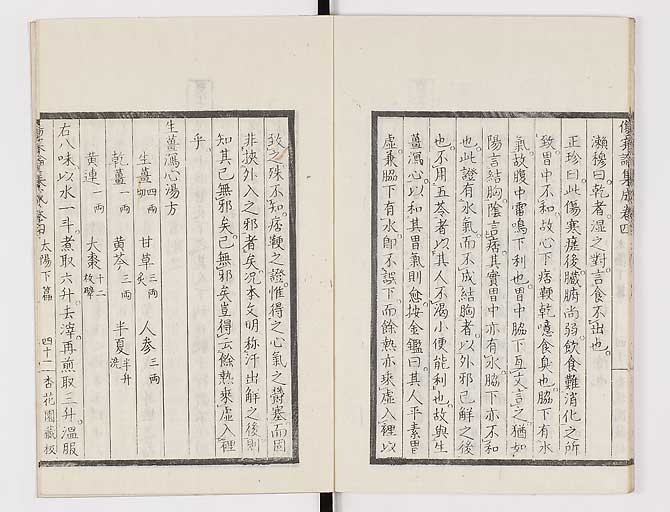 傷寒論集成卷四
瀨穆曰乾者濕之對言食不出也
正珍曰此傷寒瘥後臟腑尚弱飲食難消化之所
致胃中不和故心下痞鞕乾噫食臭也脇下有水
氣故腹中雷鳴下利也胃中脇下互文言之猶如
陽言結胸陰言痞其實胃中亦有水脇下亦不和
也此證有水氣而不成結胸者以外邪已解之後
也不用五苓者以其人不渴小便能利也故與生
薑瀉心以和其胃氣則愈按金鑑曰其人平素胃
虛兼脇下有水即不誤下而餘熱亦乘虛入裡以
致之殊不知痞鞕之證惟得之心氣之欝塞而固
非挾外入之邪者矣況本文明称汗出解之後則
知其已無邪矣已無邪矣豈得云餘熱乘虛入裡
乎
生薑瀉心湯方
生薑四兩切 甘草三兩炙 人參三兩
乾薑一兩 黃芩三兩 半夏半升洗
黃連一兩 大棗十二枚擘
右八味以水一斗煮取六升去滓再煎取三升溫服
傷寒論集成卷四 太陽下篇 四十二 杏花園藏板